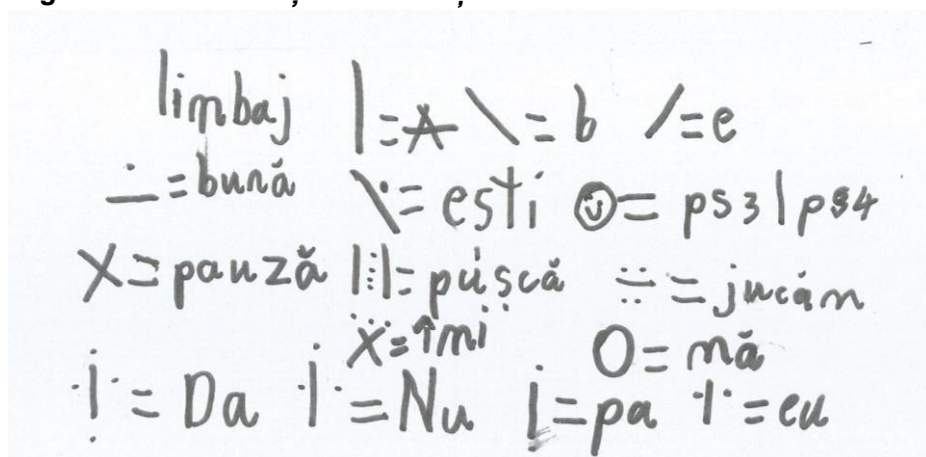 limbaj | = A \ = b / = e
∸ = bună \· = ești ☺ = ps3 | ps4
X = pauză |⋮| = pușcă ÷ = jucăm
Ẍ = îmi O = mă
= Da = Nu = pa = eu